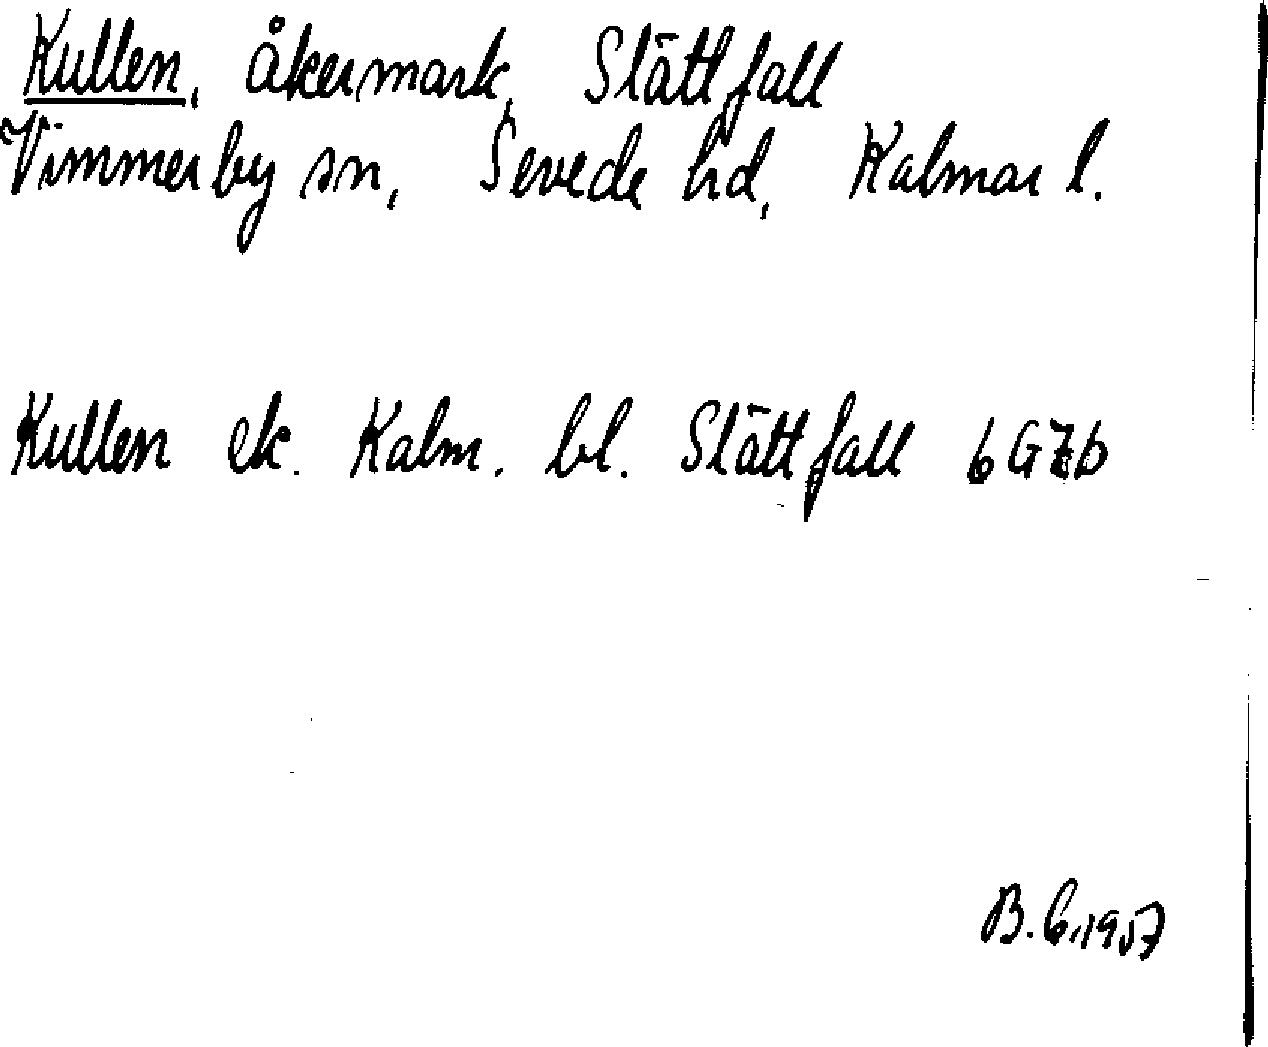 Kullen, åkermark, Slättfall
Vimmerby sn, Sevede hd, Kalmar l.
Kullen ek. Kalm. bl. Slättfall 6G7b
B. G. 1957